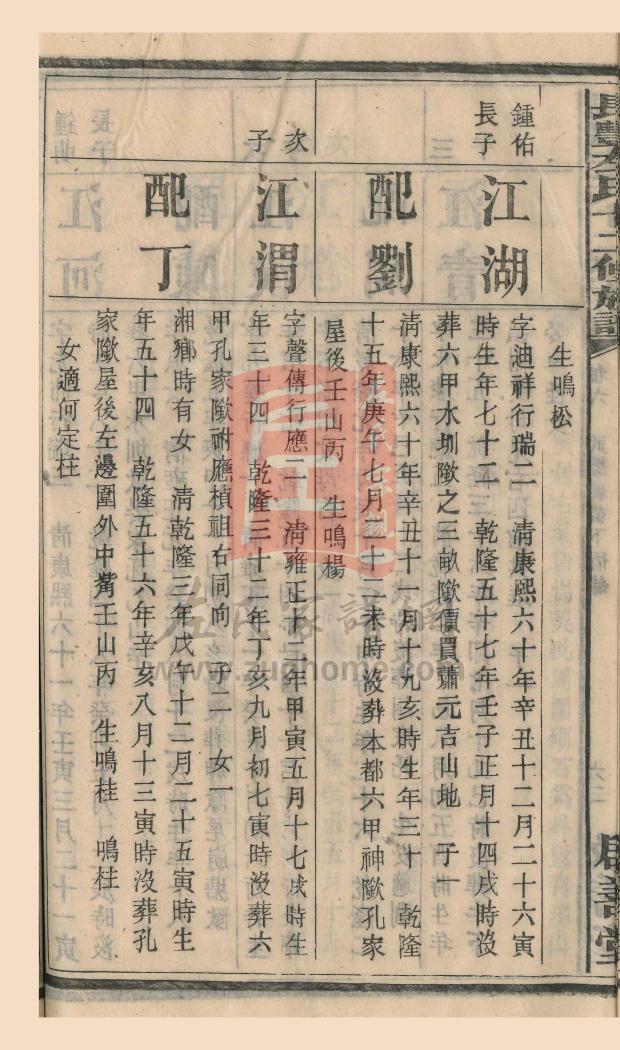 生鳴松
鍾佑
長子
江湖
字迪祥行瑞二 清康熙六十年辛丑十二月二十六寅
時生年七十二 乾隆五十七年壬子正月十四戌時沒
葬六甲水圳墩之三畝墩價買蕭元吉山地 子一
配劉
清康熙六十年辛丑十一月十九亥時生年三十 乾隆
十五年庚午七月二十二未時沒葬本都六甲神墩孔家
屋後壬山丙 生鳴楊
次
子
江渭
字聲傳行應二 清雍正十二年甲寅五月十七戌時生
年三十四 乾隆三十二年丁亥九月初七寅時沒葬六
甲孔家墩祔應楨祖右同向 子二 女一
配丁
湘鄉時有女 清乾隆三年戊午十二月二十五寅時生
年五十四 乾隆五十六年辛亥八月十三寅時沒葬孔
家墩屋後左邊圍外中嘴壬山丙 生鳴桂 鳴柱
女適何定柱
左氏家譜網
www.zuohome.com